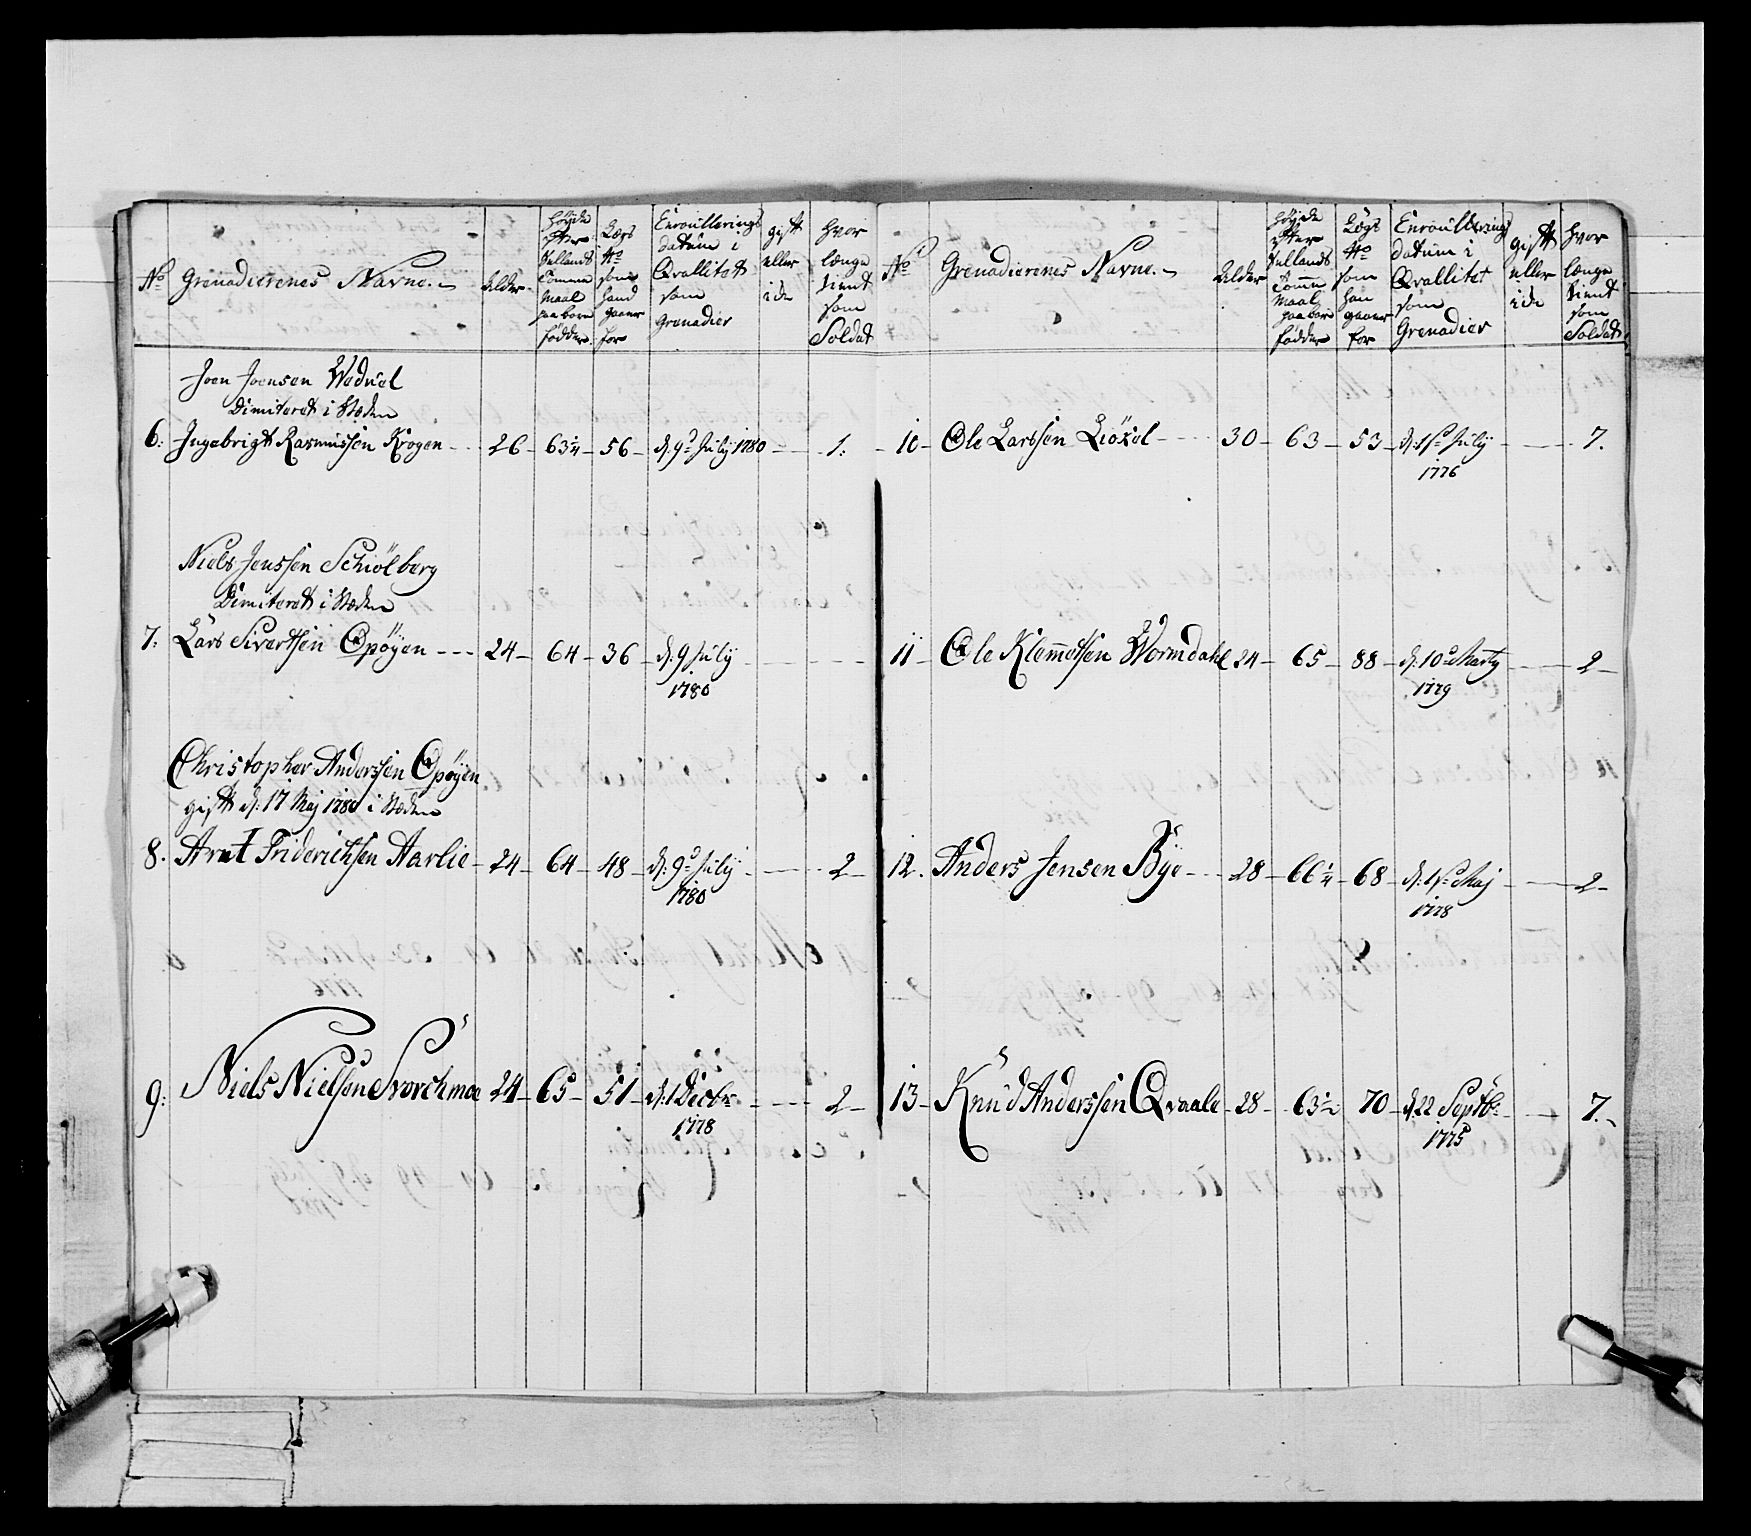 No Grenadierenes Navne. Alder. Høyde efter Sællands Tomme Maal paa bare Fødder. Lægs No som hand gaaer for Enroullerings datum i Qvallitet som Grenadier gift eller ide Hvor længe tient som Soldat
Joen Joensen Weduel
Dimiteret i Steden
6: Ingebrigt Rasmussen Krogen 26 63¼ 56 d: 9de July 1780 1:
Niels Jenssen Schiölberg
Dimiteret i Steden
7: Lars Sivertsen Opøyen 24 64 36 d: 9 July
1780
Christopher Anderssen Opøyen
gift d: 17 Maj 1780 i Steden
8. Arnt Friderichsen Aarlie 24 64 48 d: 9de July 2
1780
9: Niels Nielsen Svorchmoe 24 65 51 d: 1 Decbr: 2
1778
No Grenadierenes Navne. Alder Høyde efter Sællands Tomme Maal paa bare Fødder Lægs No som han gaaer for Enroullerings datum i Qvallitet som Grenadier gift eller ide Hvor længe tient som Soldat
10 Ole Larssen Liöxel 30 63 53 d: 1ste July 7.
1776
11 Ole Klemetsen Wormdahl 24 65 88 d: 10de Marty 2
1779
12. Anders Jensen Bye 28 66¼ 68 d: 1ste Maj 2
1778
13 Knud Anderssen Qvaale 28 63½ 70 d: 22 Septbr: 7.
1775